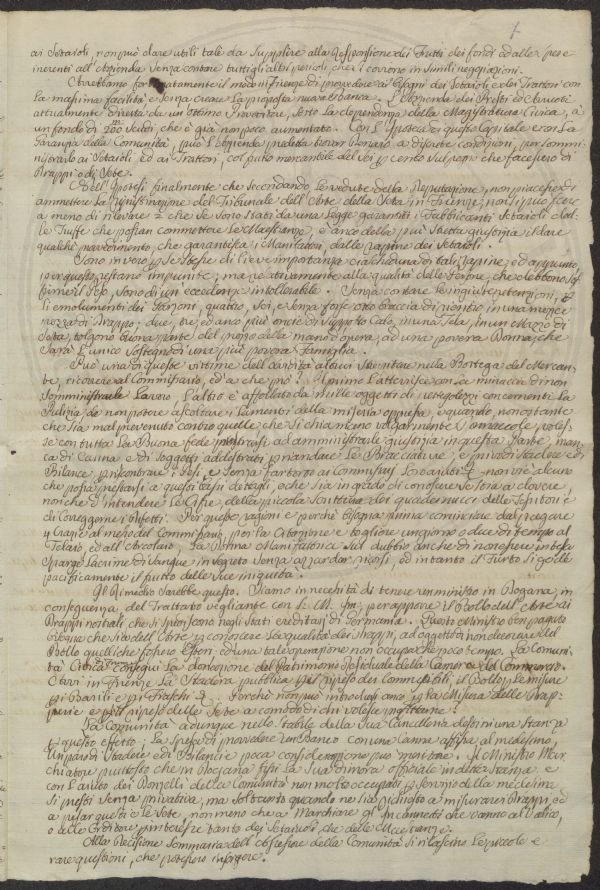 ai Setaioli, non può dare utili tali da supplire alla Responsione dei frutti dei fondi ed alle spese
inerenti all'Azienda senza contare tutti gli altri pericoli che si corrono in simili negoziazioni.
Avrebbamo fortunatamente il modo in Firenze di provvedere ai bisogni dei Setaioli e dei Trattori con
la massima facilità e senza creare la proposta nuova banca. L'Azienda dei Presti ed Abuoni
attualmente diretta da un ottimo Provveditore, sotto la dependenza della Magistratura Civica, à
un fondo di 200 Scudi che è già non poco aumentato. Con l'Ipoteca di questo Capitale e con la
Garanzia della Comunità, può l'Azienda predetta trovar Denaro a discrete condizioni, per sommi-
nistrarlo ai Setaioli ed ai Trattori, col frutto mercantile del sei per cento sul pegno che facessero di
Drappi o di Sete.
Nell'Ipotesi finalmente che secondando le vedute della Deputazione, non piacesse di
ammettere la ripristinazione del Tribunale dell'Arte della Seta in Firenze, non si può fare
a meno di rilevare che se sono stati da una Legge garantiti i Fabbricanti Setaioli dal-
le Truffe che possan commettere le Maestranze, è anco della più stretta giustizia il dare
qualche provvedimento che garantisca i Manifattori dalle rapine dei Setaioli.
Sono in vero per se stesse di lieve importanza ciascheduna di tali rapine, ed appunto
per questo restano impunite; ma relativamente alla qualità delle Persone, che debbono sof-
frirne il peso, sono di un eccedenza intollerabile. Senza contare le ingiuste pretenzioni,
gli emolumenti dei Garzoni, quattro, sei, e senza forse otto braccia di più in una mezza
pezza di Drappo; due, tre, ed anco più oncie di supposto Calo, in una Tela, in un Mazzo di
Seta, tolgono buona parte del prezzo della mano d'opera, ad una povera Donna, che
sarà l'unico sostegno di una più povera Famiglia.
Può una di queste vittime dell'avidità altrui inveire nella Bottega del Mercan-
te, ricorrere al Commissario, ed a che prò? Il primo l'atterrisce con la minaccia di non
somministrarle Lavoro, l'altro è affollato da mille oggetti concernenti la
Pulizia da non potere ascoltare i lamenti della misera oppressa, e quando, nonostante
che sia mal prevenuto contro quelle che si chiamano volgarmente Donnaccole, voles-
se con tutta la Buona fede prestarsi ad amministrarle giustizia in questa parte, man-
ca di Canna e di Soggetti addestrati per riandare le Bracciature, è privo di Stadere e di
Bilance, per riscontrare i pesi, e senza far torto ai Commissari non vi è alcuno
che possa prestarsi a questi bassi dettagli, o che sia in grado di conoscere se stia a dovere,
nonchè d'intendere le Cifre, della piccola scritturazione dei quadernucci delle Tessitore e
di Correggerne i Difetti. Per queste ragioni e perchè bisogna prima cominciare dal pagare
4 Crazie al meno del Commissario per la Citazione e togliere un giorno o due di tempo al
Telaio, ed all'Arcolaio, la Donna Manifattora sul dubbio anche di non essere intesa
sparge lacrime di sangue in segreto senza azzardar ricorsi, ed intanto il Furto si gode
pacificamente il frutto delle sue iniquità.
Il Rimedio sarebbe questo. Siamo in necessità di tenere un ministro in Dogana, in
conseguenza del Trattato vigliante con S. M. Im. per apporre il bollo dell'Arte ai
Drappi nostrali che si spediscono negli Stati ereditari di Germania. Questo Ministro ben pagato
bisogna che sia dell'Arte per conoscere la qualità dei Drappi, ad oggetto di non decorare del
Bollo quelli che fossero Esteri ed una tale operazione non occupa che poco tempo. La Comuni-
tà Civica conseguì la donazione del Patrimonio residuale della Camera del Commercio.
Essa in Firenze la Stadera pubblica pel ripeso dei Commestibili, il Bollo, le Misure
pei Barili e pei Fiaschi. Perchè non può introdurne una per la Misura delle Drap-
perie e pel ripeso delle Sete a comodo di chi volesse profittarne.
La Comunità adunque nello stabile della sua Cancelleria destini una stanza
per questo effetto; La spesa di provvedere un Banco con una Canna affissa al medesimo,
un paro di Stadere e di Bilance poca considerazione può meritare. Il Ministro Mar-
chiatore piuttosto che in Dogana fissi la sua dimora officiale in detta stanza e
con l'aiuto dei Donzelli della Comunità non molto occupati per servizio della medesima
si presti senza privativa, ma soltanto quando ne sia richiesto a misurare i Drappi, ed
a pesar questi e le Sete, non meno che a Marchiare gli Incannati che vanno al Valico,
o alle Orditore per interesse tanto dei Setaioli, che delle Maestranze.
Alla Decisione Sommaria dell'assessore della Comunità si rilascino le piccole e
rare questioni, che potessero insorgere.